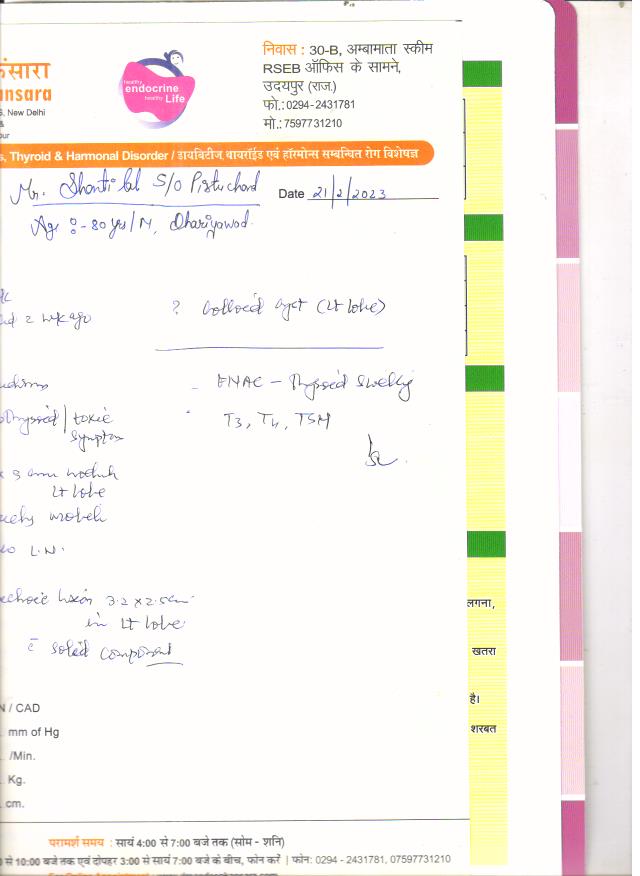 निवास : 30-B, अम्बामाता स्कीम
RSEB ऑफिस के सामने,
उदयपुर (राज.)
फो.:0294-2431781
मो.:7597731210
कंसारा
ansara
S, New Delhi
&
ur
healthy
endocrine
healthy Life
s, Thyroid & Harmonal Disorder / डायबिटीज थायरॉईड एवं हॉरमोन्स सम्बन्धित रोग विशेषज्ञ
Mr. Shantilal S/O
Date 21/2/2023
Age :- 80 yrs/M, Dhariyawad
2 wk ago
? Colloid cyst (Lt lobe)
- FNAC - Thyroid Swelling
toxic
symptom
T3, T4, TSH
Lt lobe
L.N.
3.2 x 2.5cm
in Lt lobe
c̄ solid component
लगना,
खतरा
है।
शरबत
N / CAD
mm of Hg
/Min.
Kg.
cm.
परामर्श समय : सायं 4:00 से 7:00 बजे तक (सोम - शनि)
से 10:00 बजे तक एवं दोपहर 3:00 से सायं 7:00 बजे के बीच, फोन करें | फोन: 0294 - 2431781, 07597731210